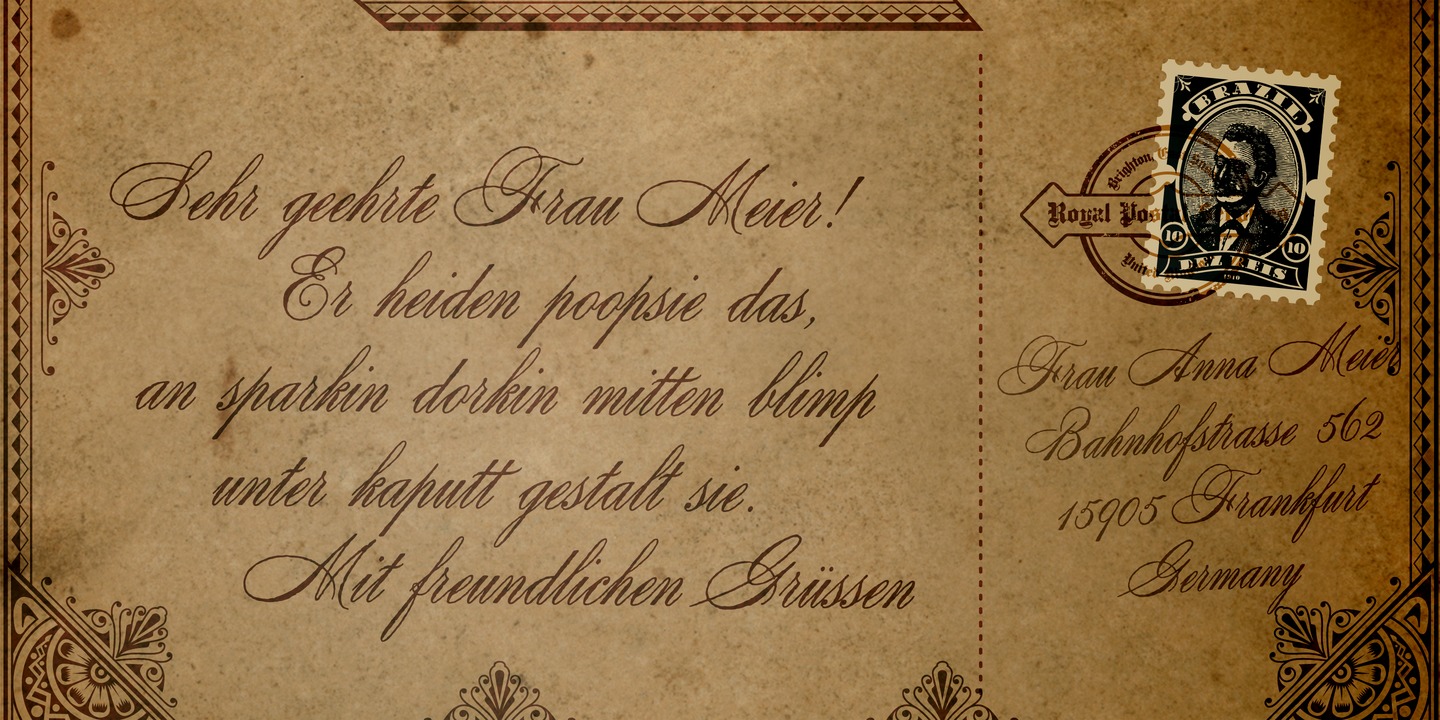 Sehr geehrte Frau Meier!
Er heiden poopsie das,
an sparkin dorkin mitten blimp
unter kaputt gestalt sie.
Mit freundlichen Grüssen
BRAZIL
10 10
DEZ REIS
Brighton,
Royal
United
Frau Anna Meier
Bahnhofstrasse 562
15905 Frankfurt
Germany